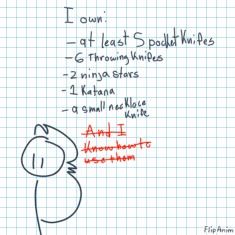 I own:
-at least 5 pocket Knifes
-6 Throwing Knifes
-2 ninja stars
-1 Katana
-a small necklace
Knife
And I
Know how to
use them
FlipAnim